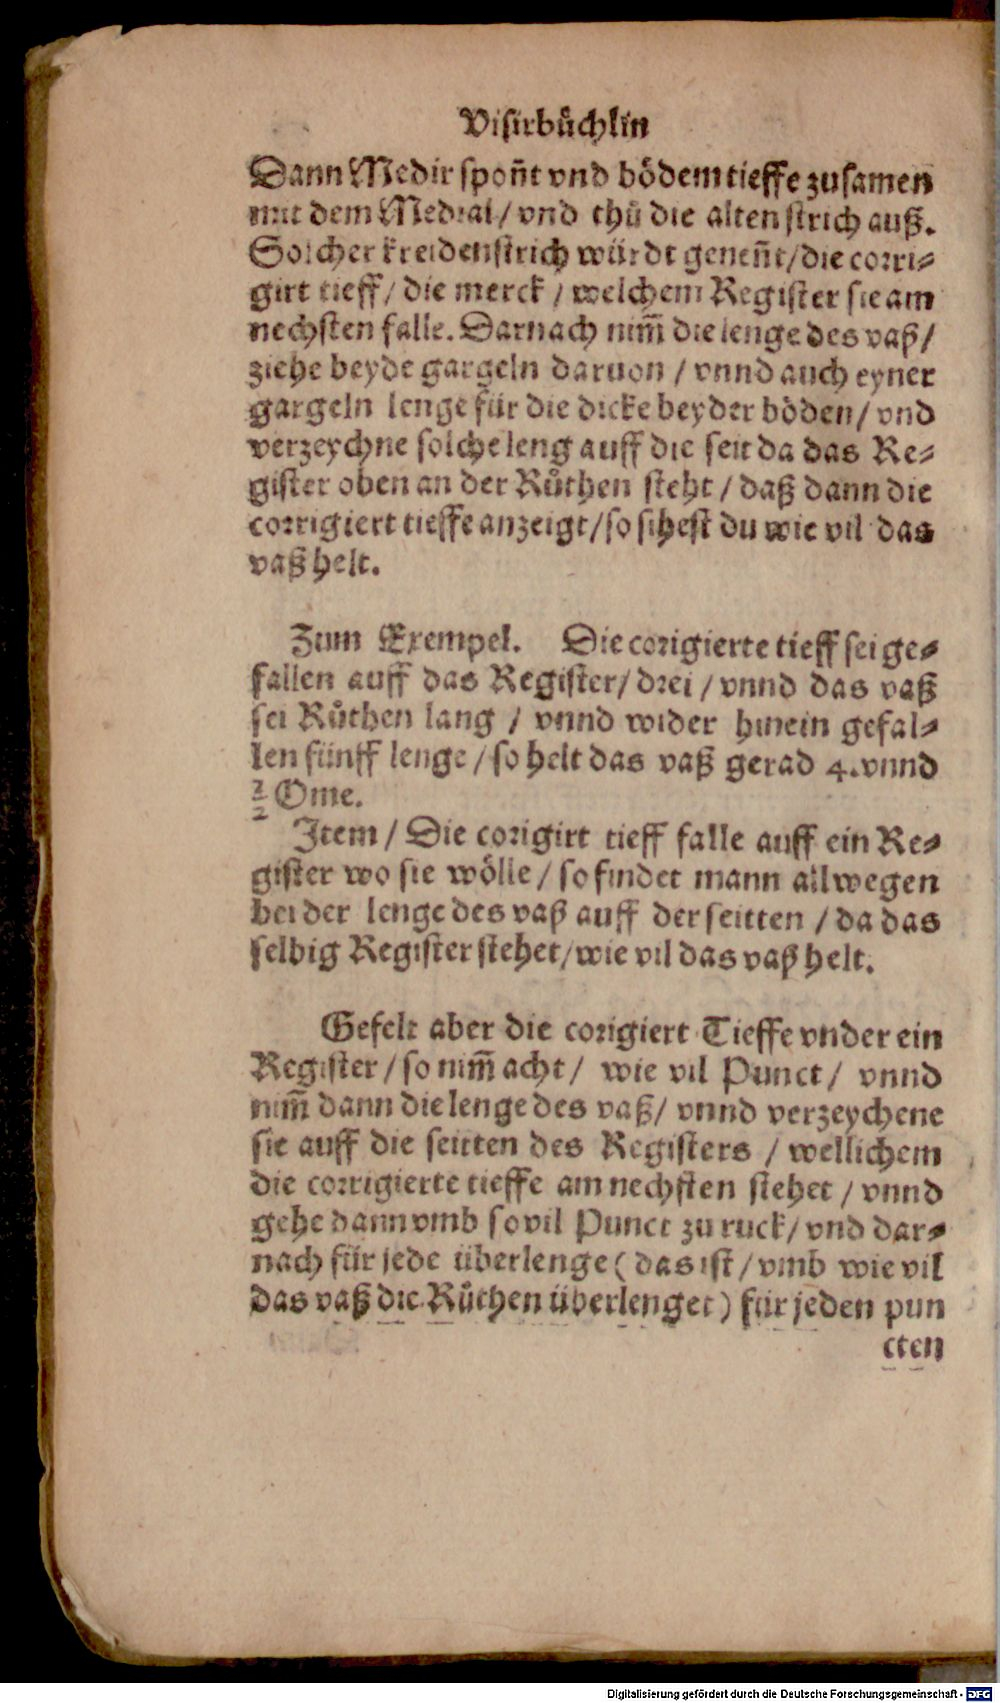 Visirbůchlin
Dann Medir spoñt vnd bödem tieffe zusamen
mit dem Medial / vnd thů die alten strich auß.
Solcher kreidenstrich würdt geneñt / die corri⸗
girt tieff / die merck / welchem Register sie am
nechsten falle. Darnach nim̃ die lenge des vaß /
ziehe beyde gargeln daruon / vnnd auch eyner
gargeln lenge für die dicke beyder böden / vnd
verzeychne solche leng auff die seit da das Re⸗
gister oben an der Růthen steht / daß dann die
corrigiert tieffe anzeigt / so sihest du wie vil das
vaß helt.
Zum Exempel. Die corigierte tieff sei ge⸗
fallen auff das Register / drei / vnnd das vaß
sei Růthen lang / vnnd wider hinein gefal⸗
len fünff lenge / so helt das vaß gerad 4. vnnd
½ Ome.
Item / Die corigirt tieff falle auff ein Re⸗
gister wo sie wölle / so findet mann allwegen
bei der lenge des vaß auff der seitten / da das
selbig Register stehet / wie vil das vaß helt.
Gefelt aber die corigiert Tieffe vnder ein
Register / so nim̃ acht / wie vil Punct / vnnd
nim̃ dann die lenge des vaß / vnnd verzeychene
sie auff die seitten des Registers / wellichem
die corrigierte tieffe am nechsten stehet / vnnd
gehe dann vmb so vil Punct zu ruck / vnd dar⸗
nach für jede überlenge ( das ist / vmb wie vil
das vaß die Růthen überlenget ) für jeden pun
cten
Digitalisierung gefördert durch die Deutsche Forschungsgemeinschaft - DFG